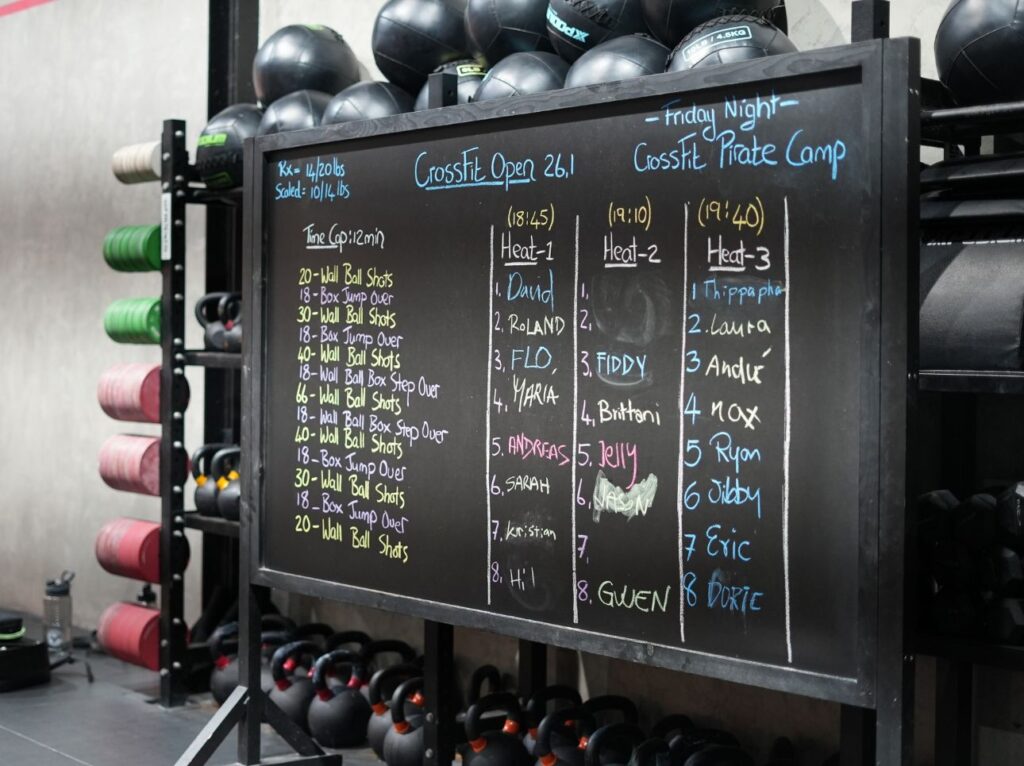 Friday Night
CrossFit Pirate Camp
CrossFit Open 26.1
Rx = 14/20 lbs
Scaled: 10/14 lbs
Time Cap: 12min
20 - Wall Ball Shots
18 - Box Jump Over
30 - Wall Ball Shots
18 - Box Jump Over
40 - Wall Ball Shots
18 - Wall Ball Box Step Over
66 - Wall Ball Shots
18 - Wall Ball Box Step Over
40 - Wall Ball Shots
18 - Box Jump Over
30 - Wall Ball Shots
18 - Box Jump Over
20 - Wall Ball Shots
(18:45)
Heat-1
1. David
2. ROLAND
3. FLO
4. MARIA
5. ANDREAS
6. SARAH
7. Kristian
8. Hil
(19:10)
Heat-2
1.
2.
3. FIDDY
4. Brittani
5. Jelly
6.
7.
8. GWEN
(19:40)
Heat-3
1 Thippapha
2. Laura
3 André
4 max
5 Ryan
6 Jibby
7 Eric
8 DORIC
10LB / 4.5KG